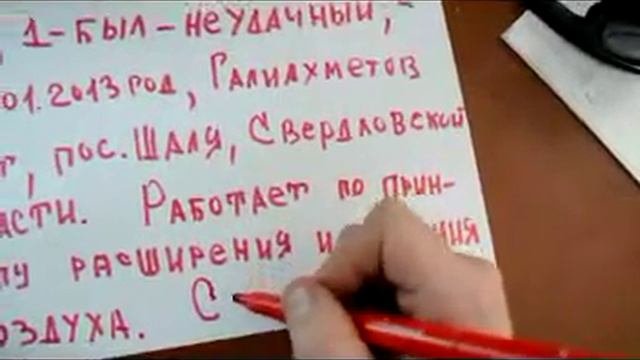 1-был-неудачный,-
01.2013 год, Галиахметов
, пос. Шаля, Свердловской
асти. Работает по прин-
пу расширения и
оздуха. С